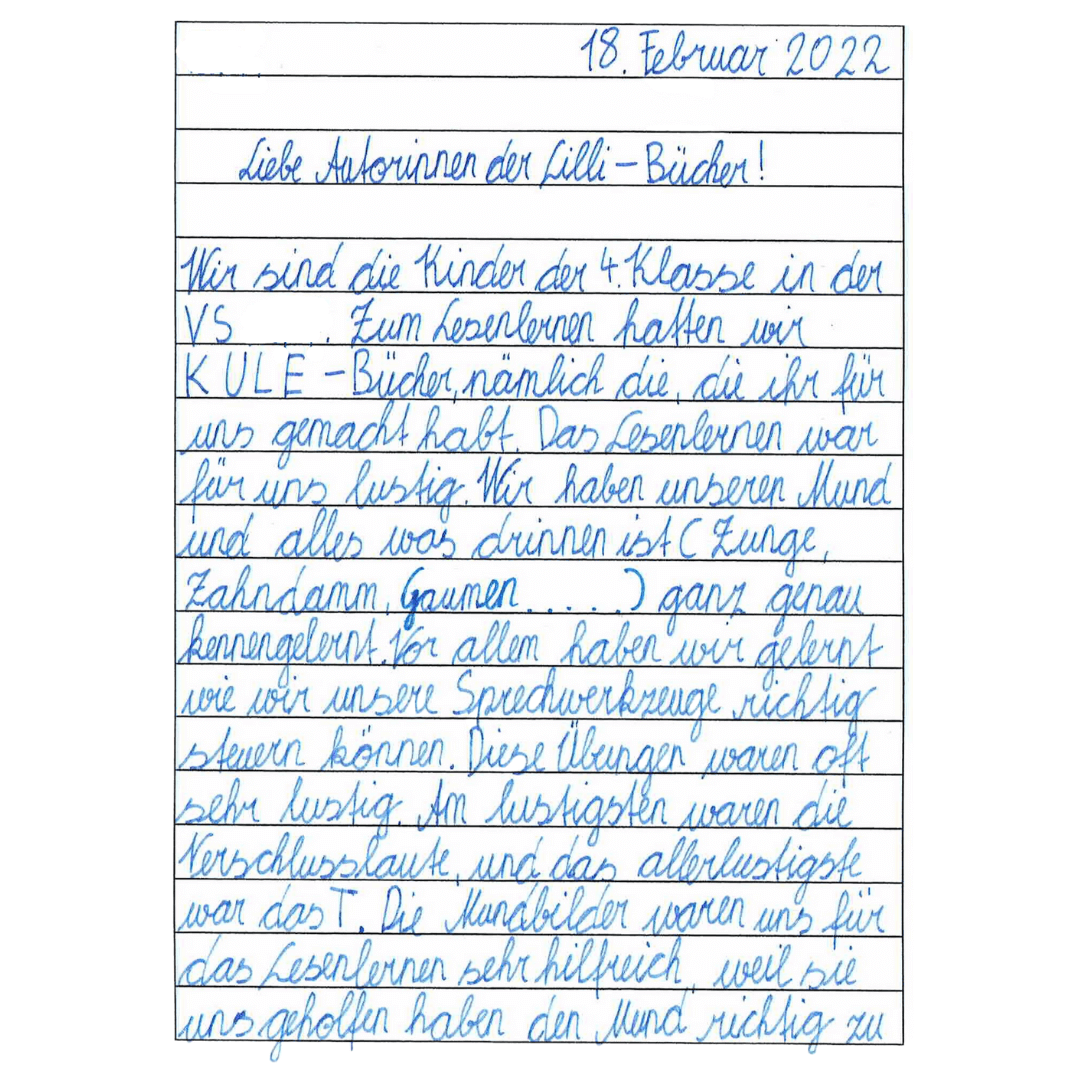 18. Februar 2022
Liebe Autorinnen der Lilli-Bücher!
Wir sind die Kinder der 4. Klasse in der
VS ..... Zum Lesenlernen hatten wir
KULE-Bücher, nämlich die, die ihr für
uns gemacht habt. Das Lesenlernen war
für uns lustig. Wir haben unseren Mund
und alles was drinnen ist (Zunge,
Zahndamm, Gaumen.....) ganz genau
kennengelernt. Vor allem haben wir gelernt
wie wir unsere Sprechwerkzeuge richtig
steuern können. Diese Übungen waren oft
sehr lustig. Am lustigsten waren die
Verschlusslaute, und das allerlustigste
war das T. Die Mundbilder waren uns für
das Lesenlernen sehr hilfreich, weil sie
uns geholfen haben den Mund richtig zu